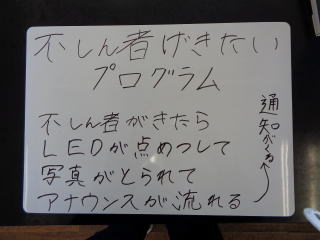 不しん者げきたい
プログラム
不しん者がきたら
LEDが点めつして
写真がとられて
アナウンスが流れる
通知がくる